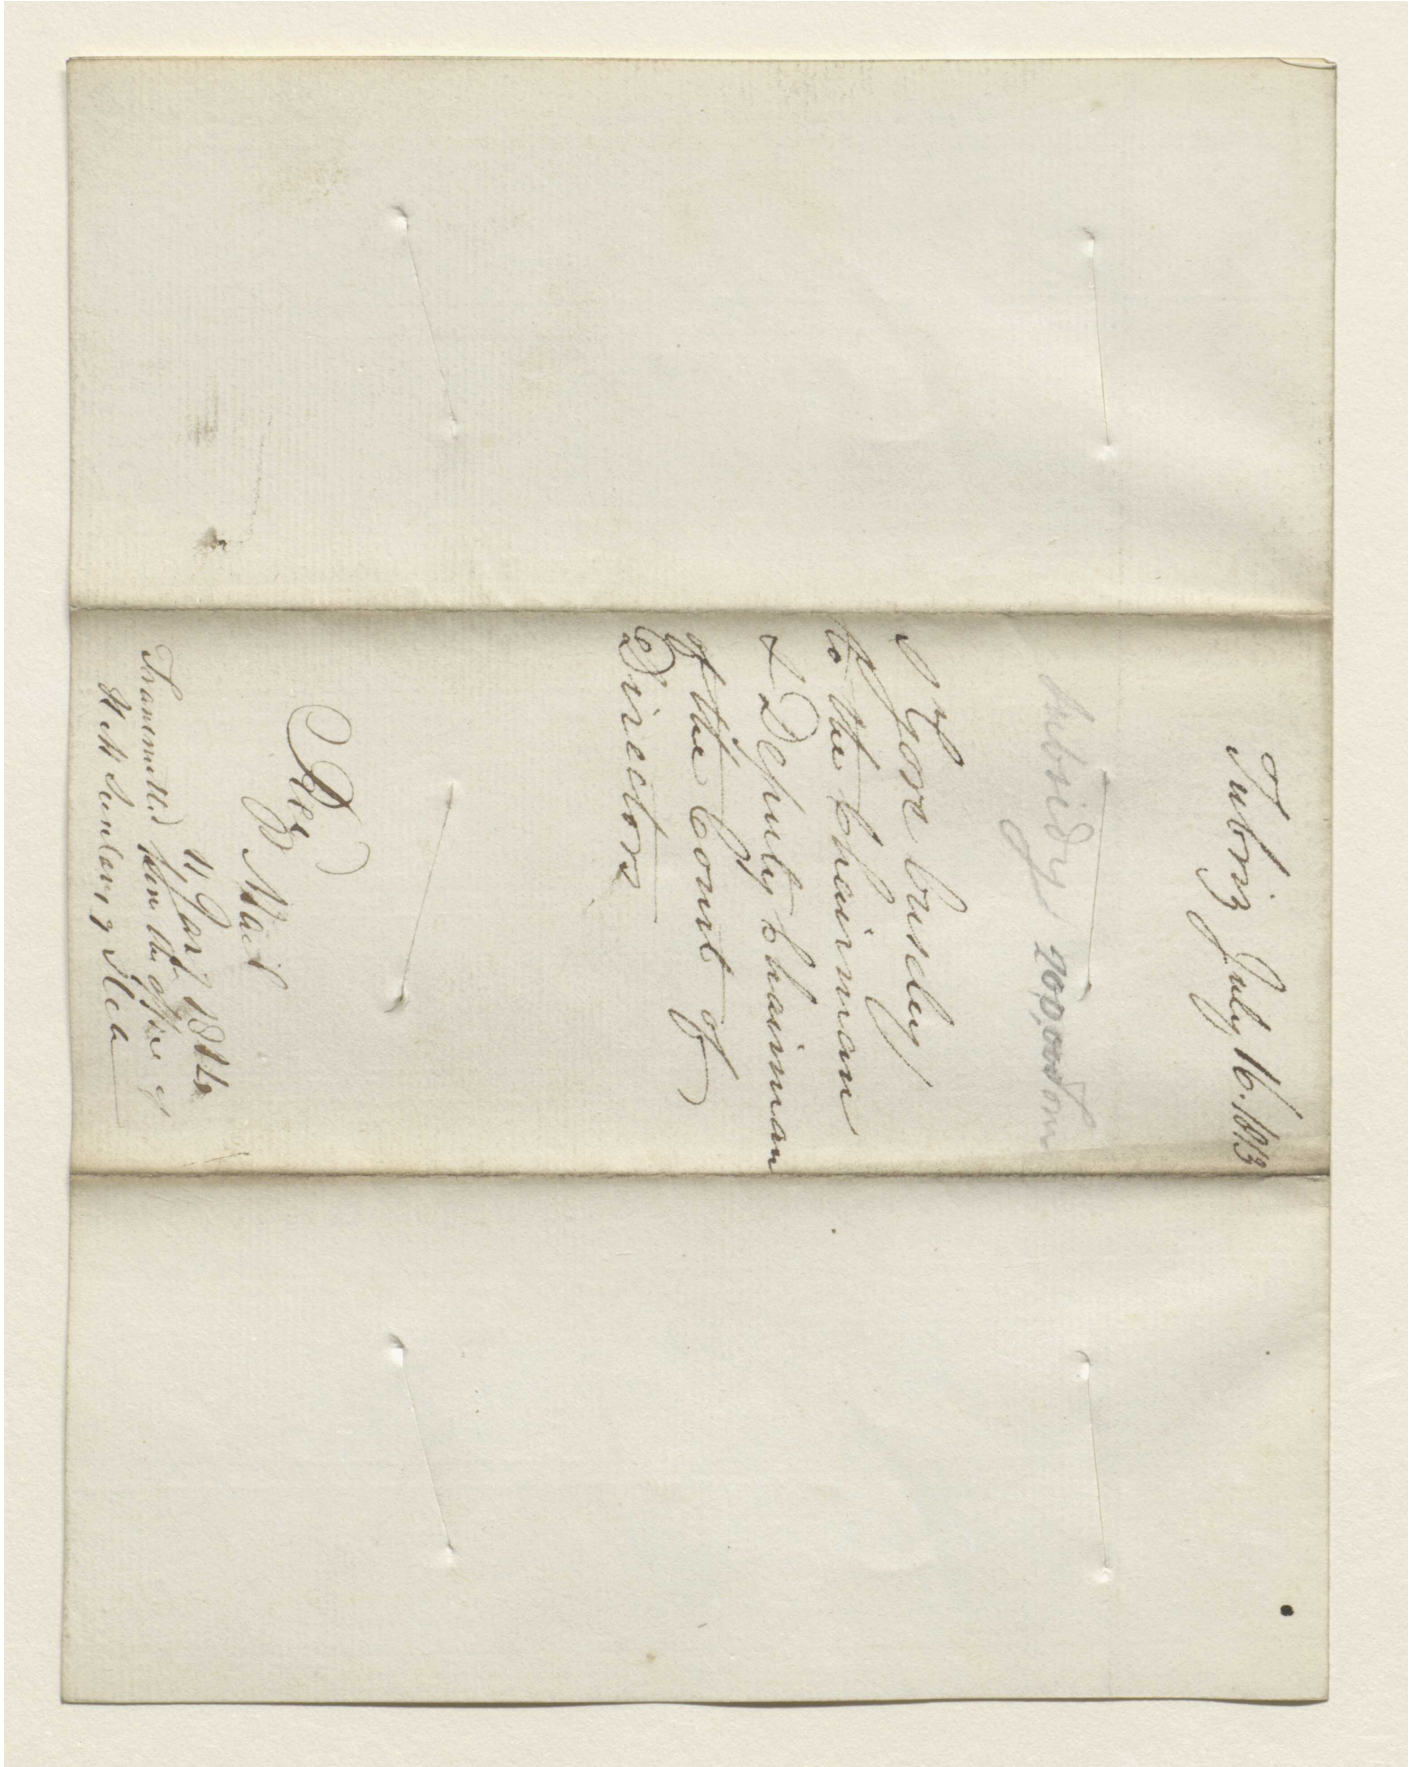 Tubriz July 16. 1813
Subsidy 200,000 Tom
Sr Gore Ouseley
to the Chairman
& Deputy Chairman
of the Court of
Directors
Rec
Mail
11 Jany 1814
Transmitted from the office of